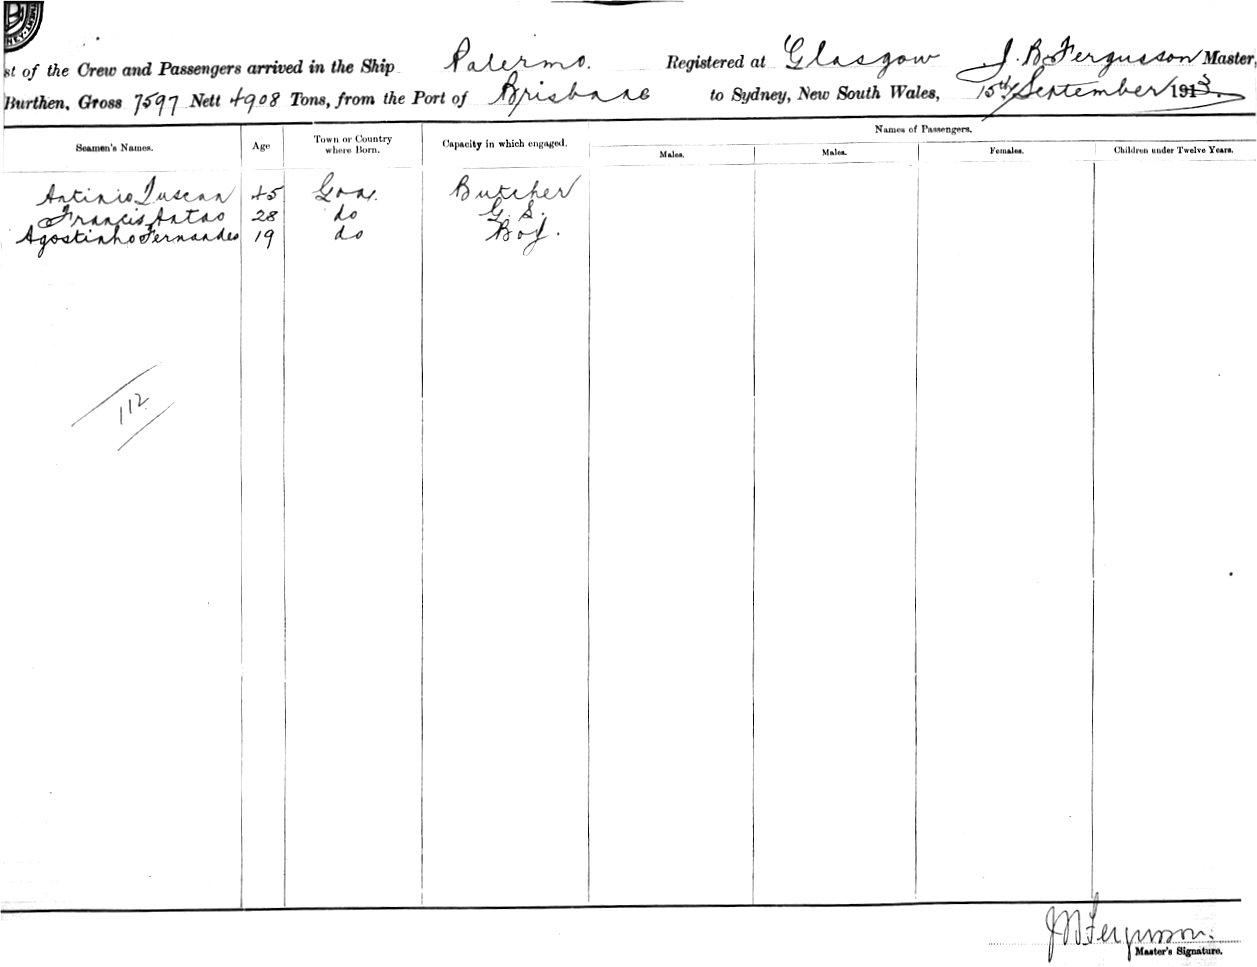 st of the Crew and Passengers arrived in the Ship Palermo. Registered at Glasgow J. B. Fergusson Master,
Burthen, Gross 7597 Nett 4908 Tons, from the Port of Brisbane to Sydney, New South Wales, 15th September 1913.
Names of Passengers.
Seamen's Names. Age Town or Country where Born. Capacity in which engaged. Males. Males. Females. Children under Twelve Years.
Antinio 45 Goa. Butcher
Francis Antao 28 do G. S.
Agostinho Fernandes 19 do Boy.
112
J B Fergusson.
Master's Signature.